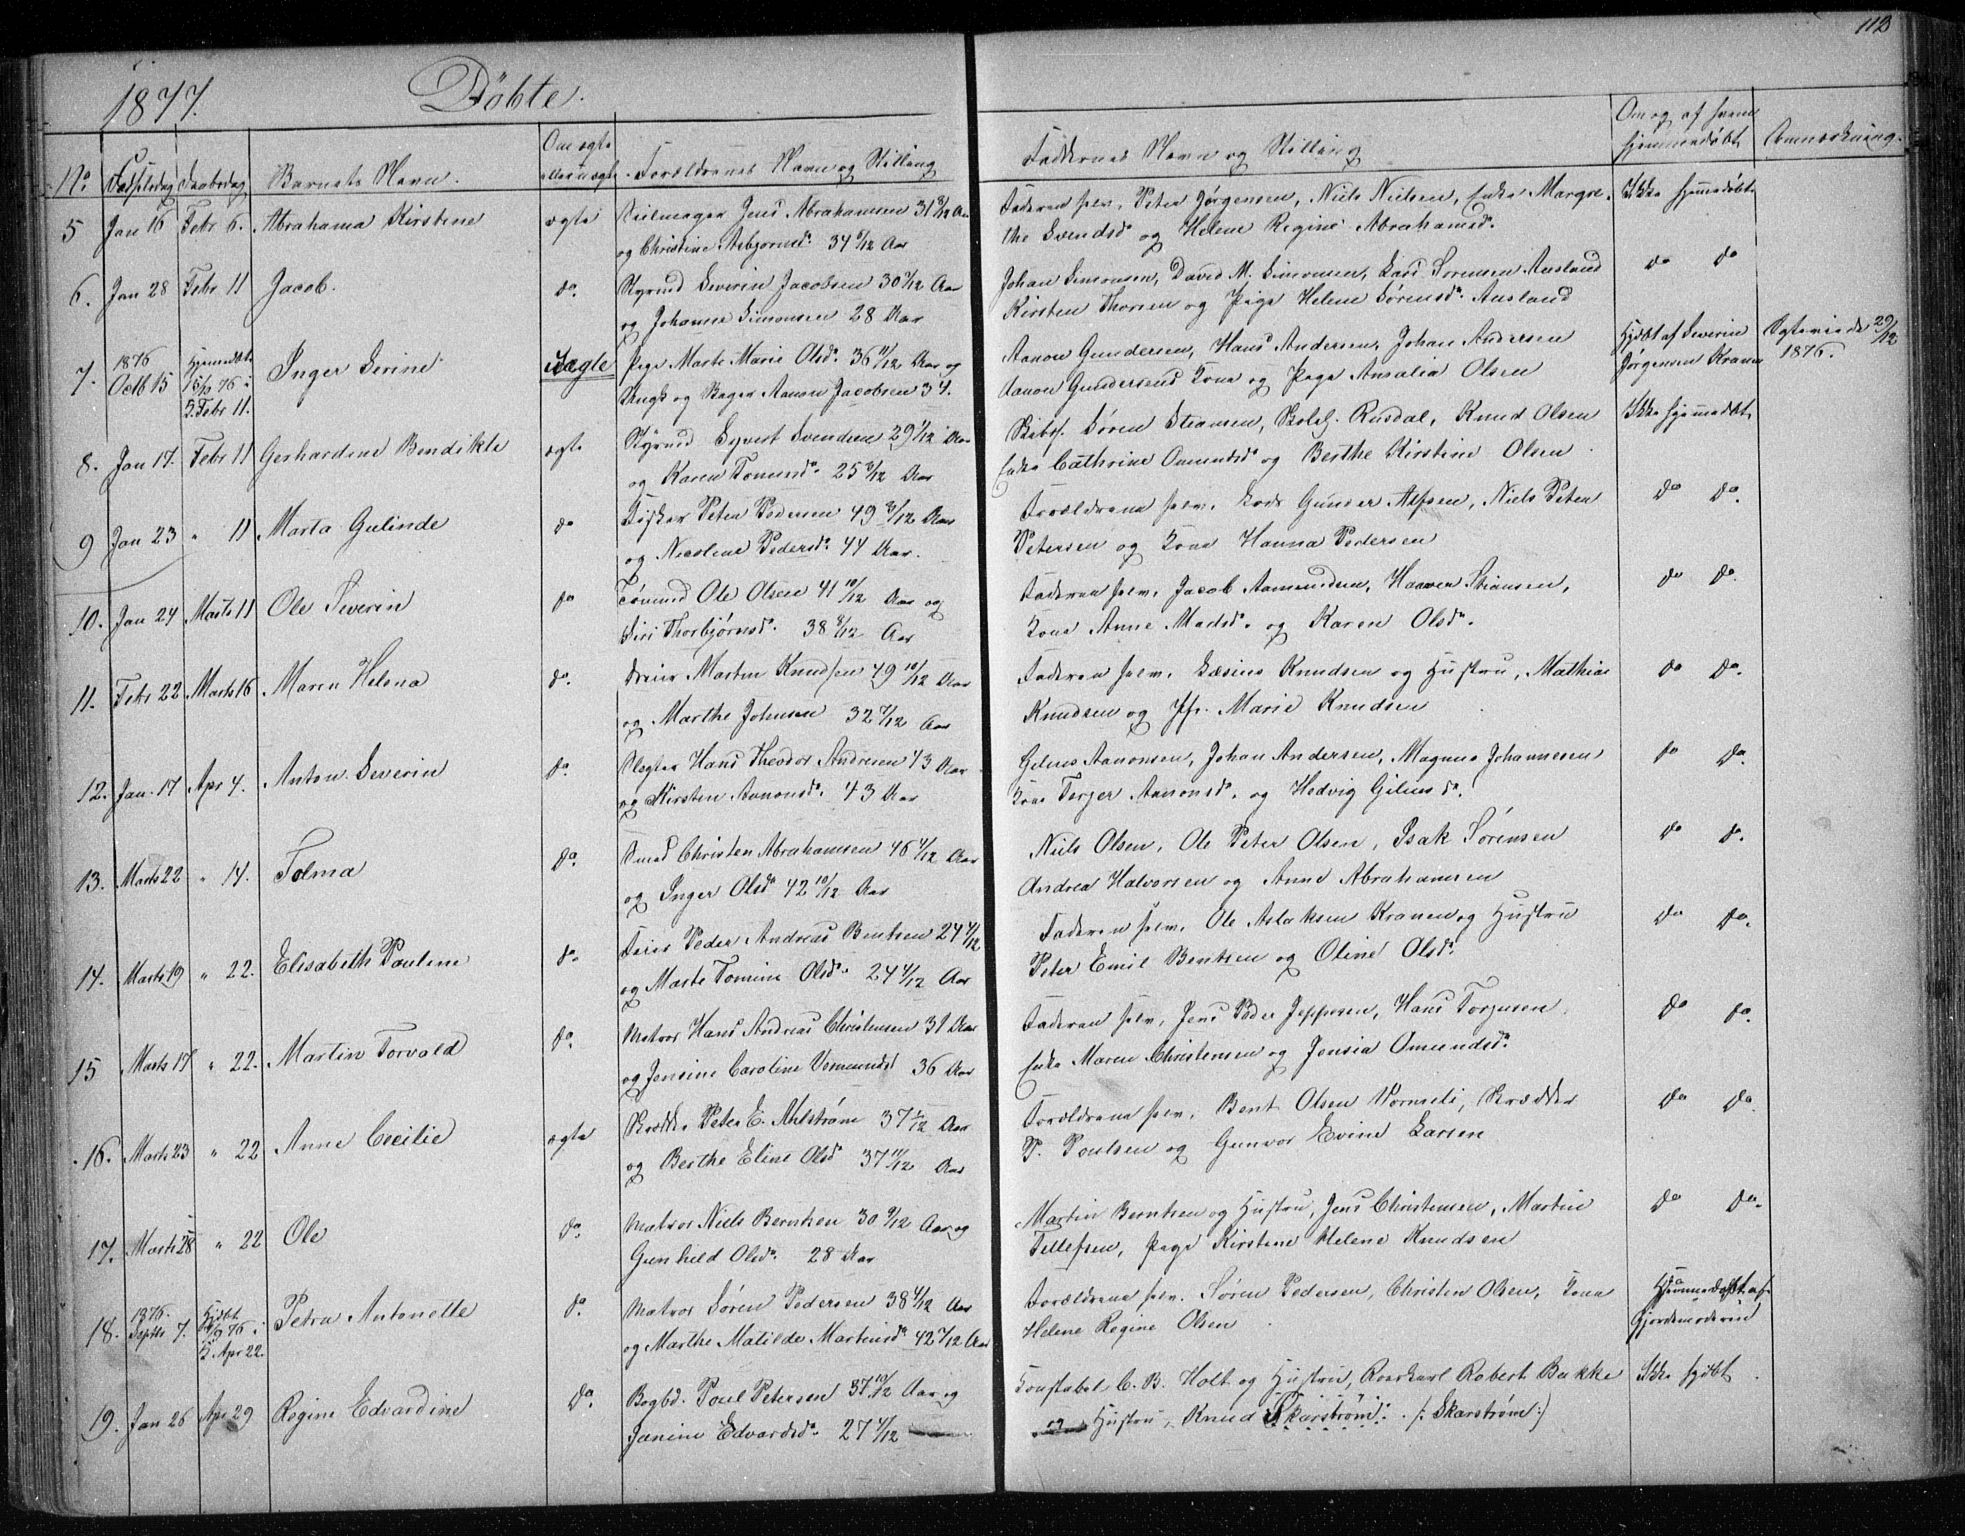 113
1877. Döbte.
No. Fødselsdag Daabsdag Barnets Navn. Om ægte eller uægte Forældrenes Navn og Stilling
Faddernes Navn og Stilling Om og af hvem hjemmedøbt Anmærkning.
5 Jan 16 Febr 6. Abrahama Kirstine ægte Seilmager Jens Abrahamsen 31 3/12 Aar
og Christine Asbjornsd. 34 Aar
Faderen selv, Peter Jørgensen, Niels Nielsen, Enke Margre-
the Svendsd. og Helene Regine Abrahamsd.
Ikke hjemmedøbt
6. Jan 28 Febr 11 Jacob. do. Styrmd Severin Jacobsen 30 Aar
og Johanne Simonsen 28 Aar
Johan Simonsen, David M. Simonsen, Lars Sørensen Ausland
Kirsten Thorsen og Pige Helene Sørensd. Ausland
do do
7. 1876 Octb 15 Hjemmedbt 76 i K. Febr 11. Inger Sirine Uægte Pige Marte Marie Olsd. 36 11/12 Aar og
Ungk og Bager Aanon Jacobsen 34.
Aanon Gundersen, Hans Andersen, Johan Andersen
Aanon Gundersens Kone og Pige Amalia Olsen
Hjdbt af Severin
Jørgensen Kranen
Ægteviede 29/12
1876.
8. Jan 17. Febr 11 Gerhardine Bendikte ægte Styrmd Syvert Svendsen 29 Aar
og Karen Tomined. 25 3/12 Aar
Skibsf. Søren Stiansen, Rusdal, Knud Olsen
Enke Cathrine Omundsd. og Berthe Kirstine Olsen
Ikke hjemmedbt
9 Jan 23 " 11 Marta Gulinde do Fisker Peter Pedersen 49 3/12 Aar
og Nicoline Pedersd. 44 Aar.
Forældrene selv, Lods Gunder Alfsen, Niels Peter
Petersen og Kone Hanna Pedersen
do do.
10. Jan 24 Marts 11 Ole Severin do Tømmd Ole Olsen 41 10/12 Aar og
Siri Thorbjørnsd. 38 8/12 Aar
Faderen selv, Jacob Aamundsen, Haaver Stiansen,
Kone Anne Madsd. og Karen Olsd.
do do.
11. Febr 22 Marts 16 Maren Helena do. Martin Knudsen 49 10/12 Aar
og Marthe Johnsen 32 7/12 Aar
Faderen selv, Gæsius Knudsen og Hustru, Mathias
Knudsen og Jfr. Marie Knudsen
do do.
12. Jan. 17 Apr 4. Anton Severin do. Slagter Hans Theodor Andresen 43 Aar
og Kirsten Aanonsd. 43 Aar
Gelius Aanonsen, Johan Andersen, Magnus Johannesen
Kone Torger Aanonsd. og Hedvig Geliusd.
do do.
13. Marts 22 " 14. Tolma do. Smed Christen Abrahamsen 46 Aar
og Inger Olsd. 42 10/12 Aar
Niels Olsen, Ole Peter Olsen, Isak Sørensen
Andrea Halvorsen og Anne Abrahamsen
do do.
14. Marts 19 " 22. Elisabeth Pauline do. Peder Andreas Bentsen 24 4/12
og Marte Tomine Olsd. 24 4/12 Aar
Faderen selv, Ole Aslaksen Kranen og Hustru
Peter Emil Bentsen og Oline Olsd.
do do.
15 Marts 17 " 22. Martin Torvald do. Matros Hans Andreas Christensen 31 Aar
og Jensine Caroline Vermundsd 36 Aar
Faderen selv, Jens Peder Jeppesen, Hans Torjusen
Enke Maren Christensen og Jensia Omundsd.
do do.
16. Marts 23 " 22 Anne Cecilie ægte Skrædder Peter E. Ahlstrøm 37 1/12 Aar
og Berthe Eline Olsd 37 11/12 Aar
Forældrene selv, Bent Olsen Vormeli, Skrædder
P. Poulsen og Gunvor Evine Larsen
do do.
17. Marts 28 " 22 Ole do. Matros Niels Berntsen 30 9/12 Aar og
Gunhild Olsd. 28 Aar
Martin Berntsen og Hustru, Jens Christensen, Martin
Tellefsen, Pige Kirstine Helene Knudsen
do do.
18. 1876. Septbr 7. Hjdbt 76 i K. Apr 22. Petra Antonette do. Matros Søren Pedersen 38 4/12 Aar
og Marthe Matilde Martinsd. 42 7/12 Aar
Forældrene selv, Søren Pedersen, Christen Olsen, Kone
Helene Regine Olsen
Hjemmedøbt af
Gjordemoderen
19. Jan 26 Apr 29 Regine Edvardine do. Bogbd. Poul Petersen 37 10/12 Aar og
Janine Edvardsd. 27 4/12
Konstabel C. B. Holt og Hustru, Roerkarl Robert Bakke
og Hustru, Knud Skarstrøm. (: Skarstrøm :)
Ikke hjdbt